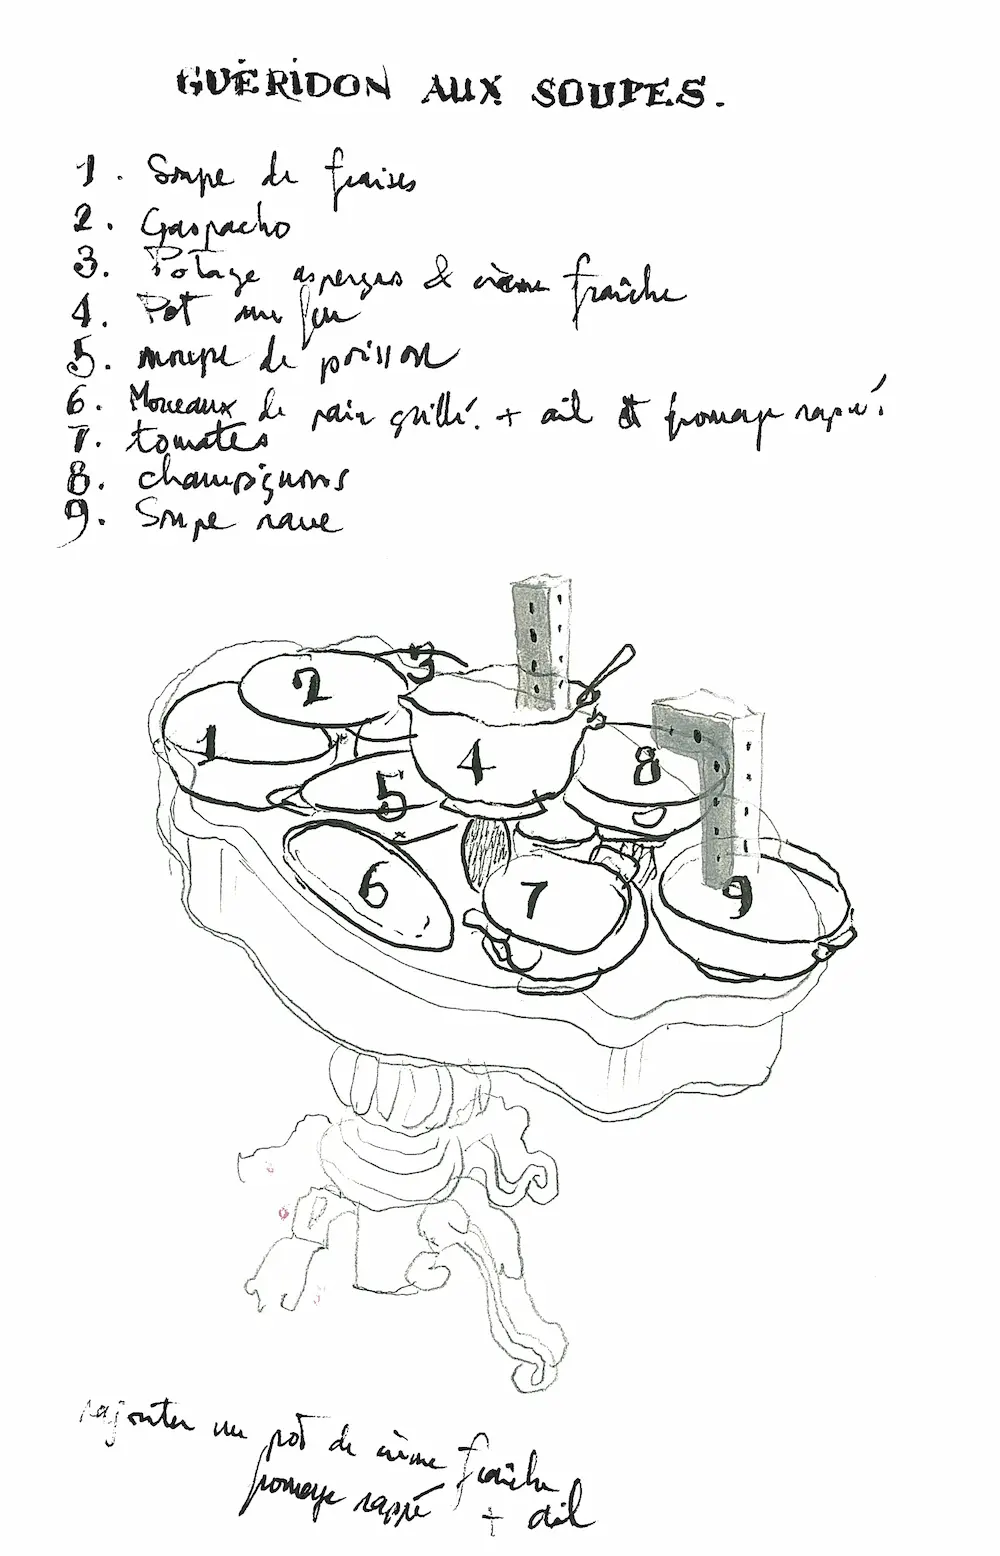 GUÉRIDON AUX SOUPES.
1. Soupe de fraises
2. Gaspacho
3. Potage asperges & crème fraîche
4. Pot au feu
5. soupe de poisson
6. Morceaux de pain grillé. + ail et fromage rapé.
7. tomates
8. champignons
9. Soupe
3
2
1
4
5
8
6
7
9
rajouter un pot de crème fraîche
fromage rappé + ail